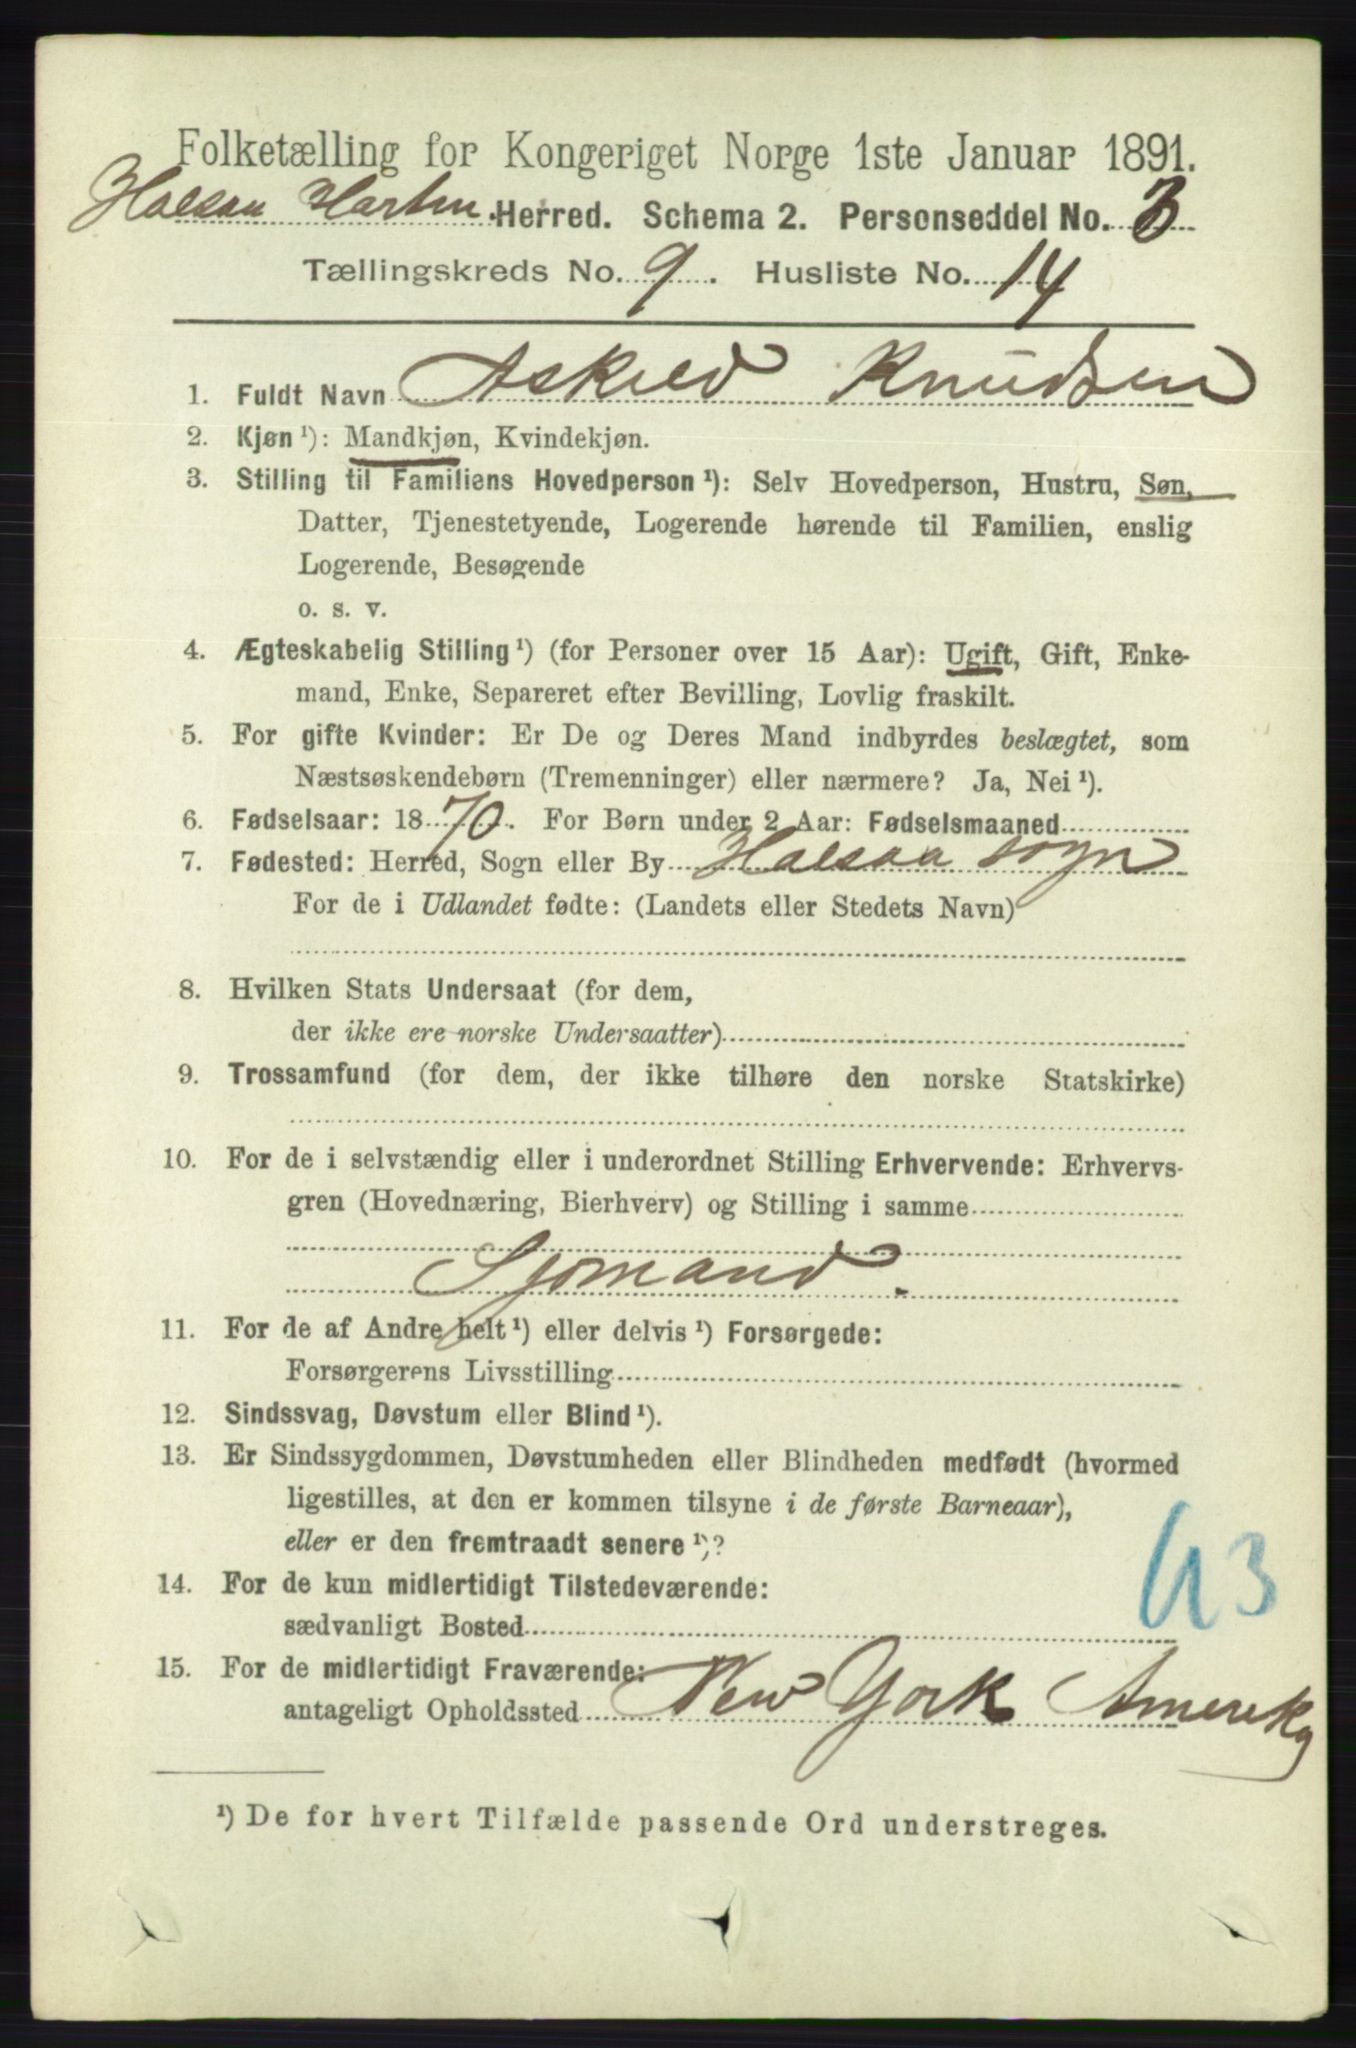 Folketælling for Kongeriget Norge 1ste Januar 1891.
Halsaa Hartm. Herred. Schema 2. Personseddel No. 3
Tællingskreds No. 9. Husliste No. 14
1. Fuldt Navn Askild Knudsen
2. Kjøn ¹): Mandkjøn, Kvindekjøn.
3. Stilling til Familiens Hovedperson ¹): Selv Hovedperson, Hustru, Søn,
Datter, Tjenestetyende, Logerende hørende til Familien, enslig
Logerende, Besøgende
o. s. v.
4. Ægteskabelig Stilling ¹) (for Personer over 15 Aar): Ugift, Gift, Enke-
mand, Enke, Separeret efter Bevilling, Lovlig fraskilt.
5. For gifte Kvinder: Er De og Deres Mand indbyrdes beslægtet, som
Næstsøskendebørn (Tremenninger) eller nærmere? Ja, Nei ¹).
6. Fødselsaar: 1870. For Børn under 2 Aar: Fødselsmaaned
7. Fødested: Herred, Sogn eller By Halsaa sogn
For de i Udlandet fødte: (Landets eller Stedets Navn)
8. Hvilken Stats Undersaat (for dem,
der ikke ere norske Undersaatter)
9. Trossamfund (for dem, der ikke tilhøre den norske Statskirke)
10. For de i selvstændig eller i underordnet Stilling Erhvervende: Erhvervs-
gren (Hovednæring, Bierhverv) og Stilling i samme
Sjømand.
11. For de af Andre helt ¹) eller delvis ¹) Forsørgede:
Forsørgerens Livsstilling
12. Sindssvag, Døvstum eller Blind ¹).
13. Er Sindssygdommen, Døvstumheden eller Blindheden medfødt (hvormed
ligestilles, at den er kommen tilsyne i de første Barneaar),
eller er den fremtraadt senere ¹)?
14. For de kun midlertidigt Tilstedeværende:
sædvanligt Bosted
63
15. For de midlertidigt Fraværende:
antageligt Opholdssted New York Amerika
¹) De for hvert Tilfælde passende Ord understreges.